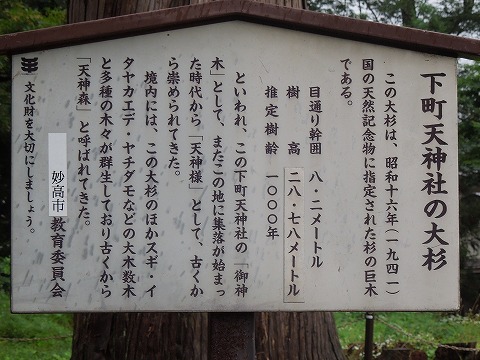 下町天神社の大杉
この大杉は、昭和十六年(一九四一)
国の天然記念物に指定された杉の巨木
である。
目通り幹囲 八・二メートル
樹高 二八・七八メートル
推定樹齢 一〇〇〇年
といわれ、この下町天神社の「御神
木」として、またこの地に集落が始まっ
た時代から「天神様」として、古くか
ら崇められてきた。
境内には、この大杉のほかスギ・イ
タヤカエデ・ヤチダモなどの大木数木
と多種の木々が群生しており古くから
「天神森」と呼ばれてきた。
妙高市教育委員会
文化財を大切にしましょう。